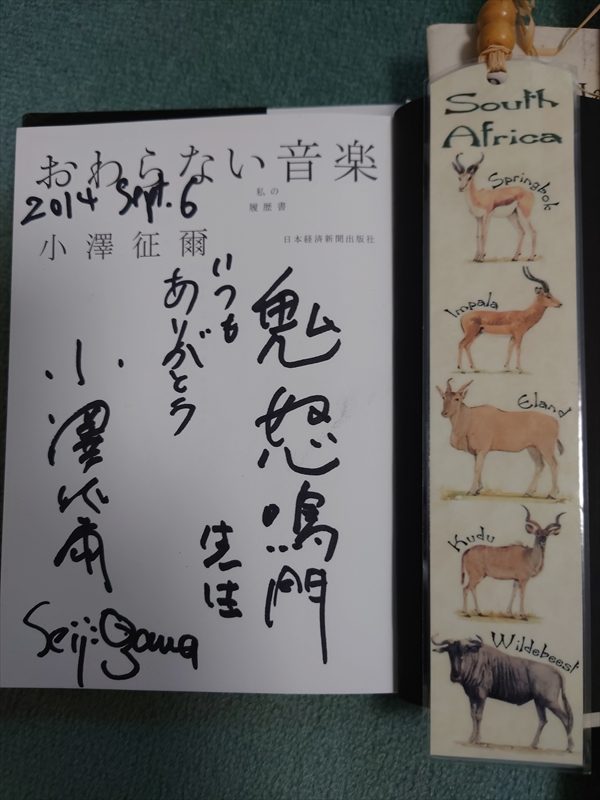 おわらない音楽
私の
履歴書
2014 Sept. 6
小澤征爾
日本経済新聞出版社
鬼怒鳴門
先生
いつも
ありがとう
小澤征爾
Seiji Ozawa
South
Africa
Springbok
Impala
Eland
Kudu
Wildebeest